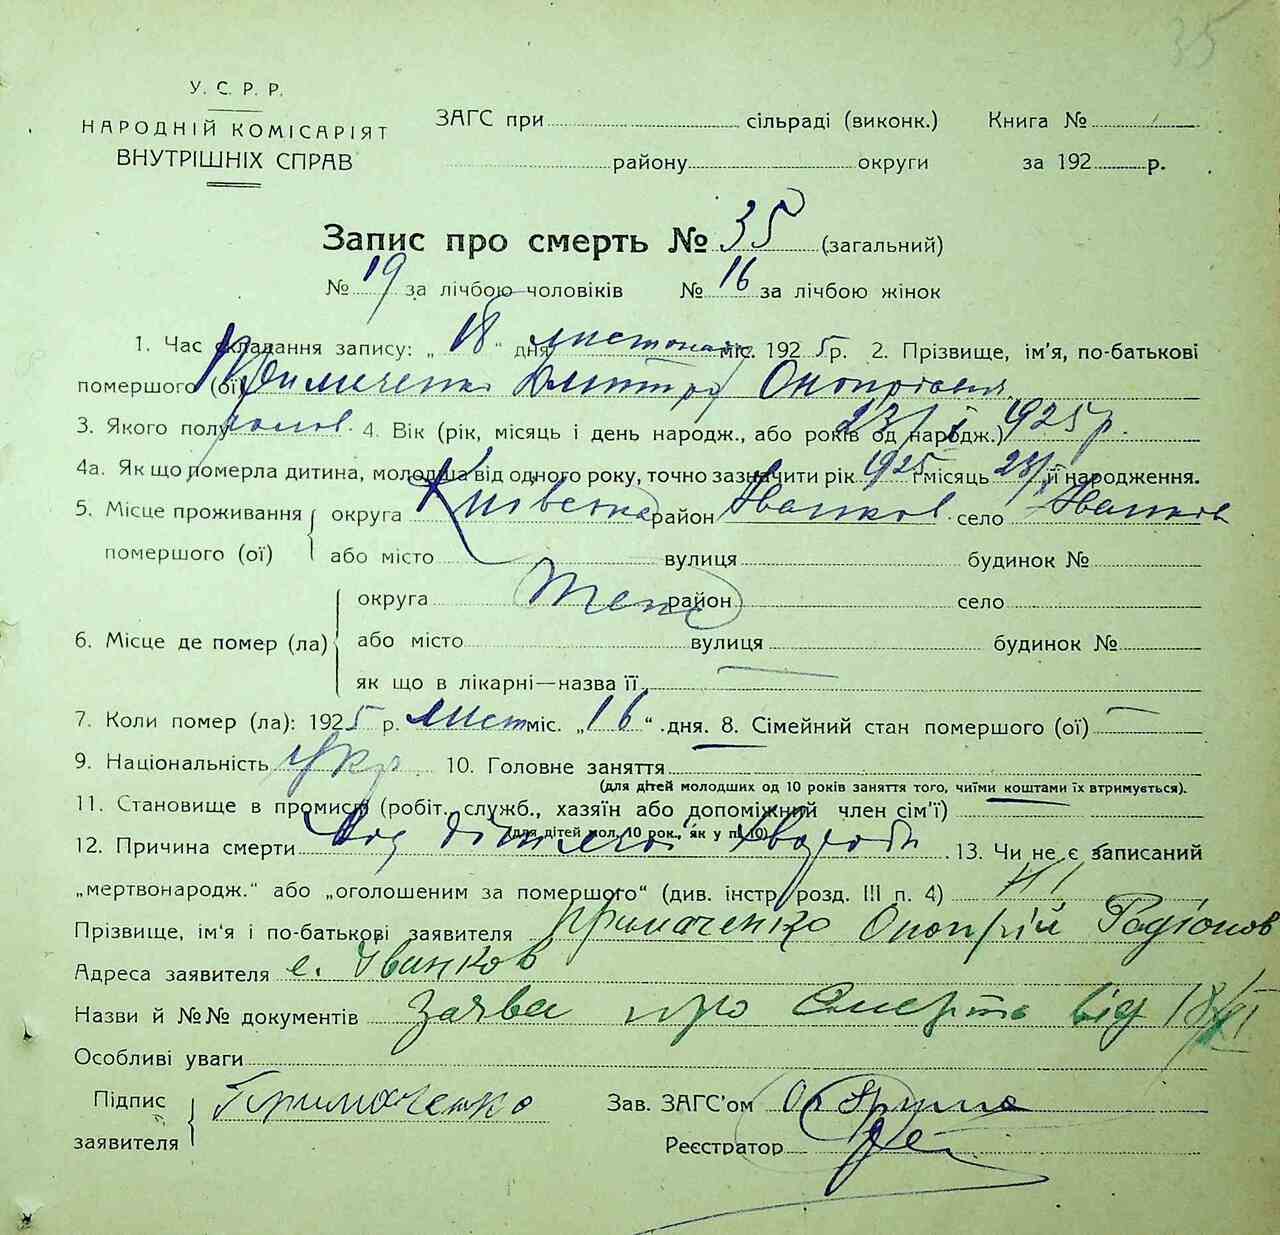 35
У. С. Р. Р.
НАРОДНІЙ КОМІСАРІЯТ
ВНУТРІШНІХ СПРАВ
ЗАГС при сільраді (виконк.) Книга №
району округи за 192 р.
Запис про смерть № 35 (загальний)
№ 19 за лічбою чоловіків № 16 за лічбою жінок
1. Час складання запису: „18“ дня листопада міс. 1925 р. 2. Прізвище, ім'я, по-батькові
помершого (ої) Примаченко Дмитро Онопріевич
3. Якого полу чолов. 4. Вік (рік, місяць і день народж., або років од народж.) 23/X 1925 р.
4а. Як що померла дитина, молодша від одного року, точно зазначити рік 1925 і місяць 23/X її народження.
5. Місце проживання помершого (ої) округа Київська район Іванков село Іванков
або місто вулиця будинок №
6. Місце де помер (ла) округа район село
або місто вулиця будинок №
як що в лікарні—назва її
7. Коли помер (ла): 1925 р. лист міс. „16“ дня. 8. Сімейний стан помершого (ої) —
9. Національність укр. 10. Головне заняття
(для дітей молодших од 10 років заняття того, чиїми коштами їх втримується).
11. Становище в промислі (робіт., служб., хазяїн або допоміжний член сім'ї)
(для дітей мол. 10 рок., як у п. 10)
12. Причина смерти Од дітячої хвороби 13. Чи не є записаний
„мертвонародж.“ або „оголошеним за помершого“ (див. інстр. розд. III п. 4) Ні
Прізвище, ім'я і по-батькові заявителя Примаченко Онопрій Радіонов
Адреса заявителя с. Іванков
Назви й №№ документів Заява про смерть від 18/XI
Особливі уваги
Підпис заявителя Примаченко Зав. ЗАГС'ом
Реєстратор